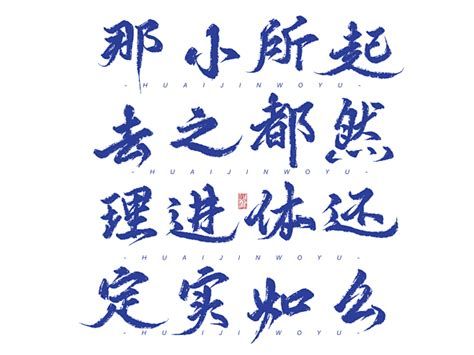 那小所起
- H U A I J I N W O Y U -
去之都然
- H U A I J I N W O Y U -
理进体还
- H U A I J I N W O Y U -
定实如么
- H U A I J I N W O Y U -